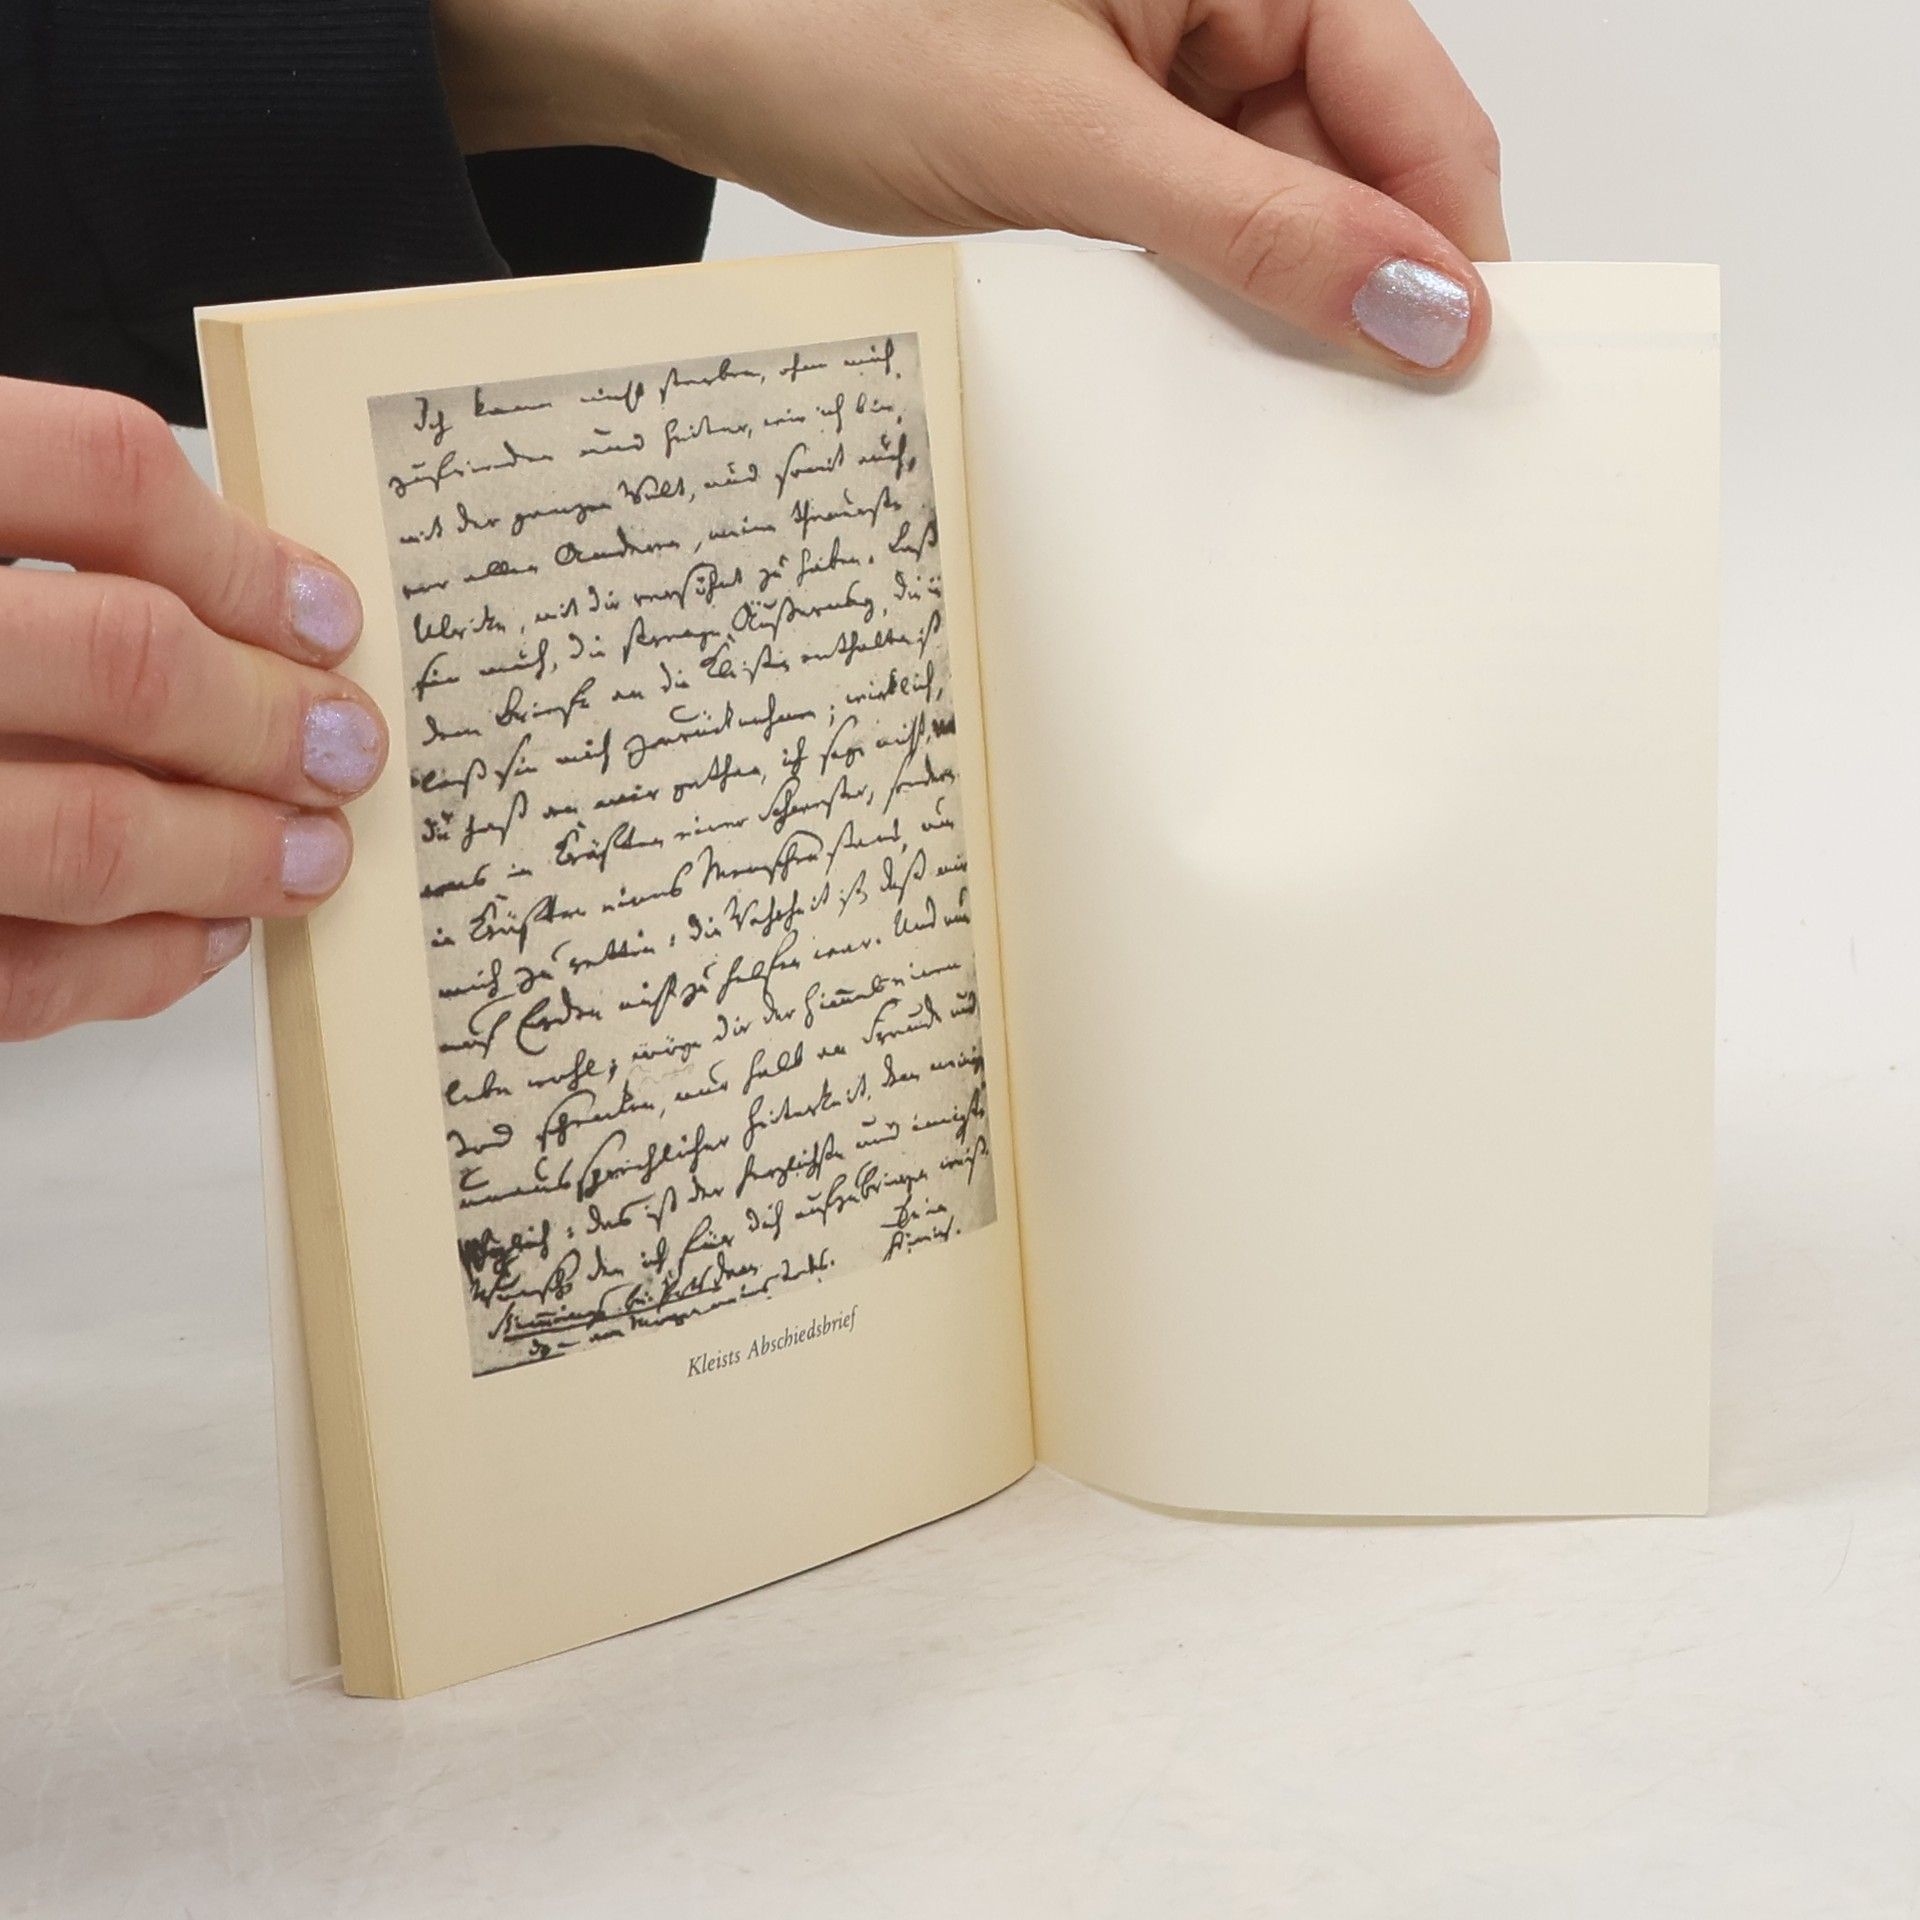 Ich kann nicht sterben, ohne mich,
zufrieden und heiter, wie ich bin,
mit der ganzen Welt, und somit auch,
vor allen Anderen, meine theuerste
Ulrike, mit dir versöhnt zu haben. Laß
sie mich, die strenge Äußerung, die in
dem Briefe an die Kleisten enthalten ist
laß sie mich zurücknehmen; wirklich,
du hast an mir gethan, ich sage nicht,
was in Kräften einer Schwester, sondern
in Kräften eines Menschen stand, um
mich zu retten: die Wahrheit ist, daß mir
auf Erden nicht zu helfen war. Und nun
lebe wohl; möge dir der Himmel einen
Tod schenken, nur halb an Freude und
unaussprechlicher Heiterkeit, dem meinigen
gleich: das ist der herzlichste und innigste
Wunsch den ich für dich aufzubringen weiß.
Dein
Heinrich.
Stimmings bei Potsdam
d. – am Morgen meines Todes.
Kleists Abschiedsbrief